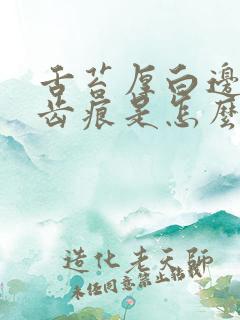 舌苔厚白邊
齿痕是怎麽
造化老天師
未任同意禁止转载